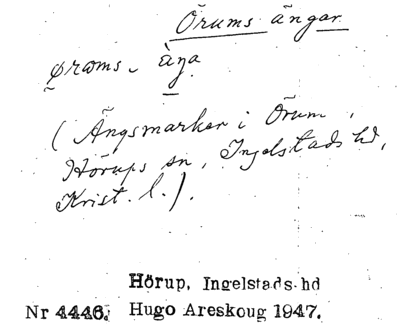 Örums ängar
øroms- äŋa
(Ängsmarker i Örum,
Hörups sn, Ingelstads hd,
Krist. l.).
Hörup, Ingelstads hd
Nr 4446. Hugo Areskoug 1947.